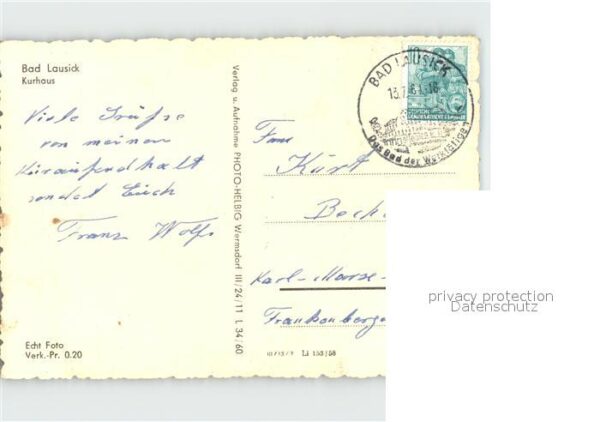 Bad Lausick
Kurhaus
Viele Grüße
von meinem
Kuraufendhalt
sendet Euch
Franz Wolf
Echt Foto
Verk.-Pr. 0.20
Verlag u. Aufnahme PHOTO-HELBIG Wermsdorf III/24/11 L 34/60
BAD LAUSICK
13.7.61-18
Das Bad der Werktätigen
Kurt
Karl-Marx-
Frankenberger
Li 153/58
privacy protection
Datenschutz